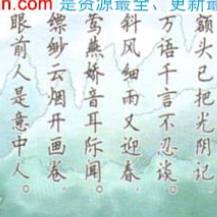 in.com是资源最全、更新最
额头已把光阴记，
万语千言不忍谈。
斜风细雨又迎春，
莺燕娇音耳际闻。
缥缈云烟开画卷，
眼前人是意中人。